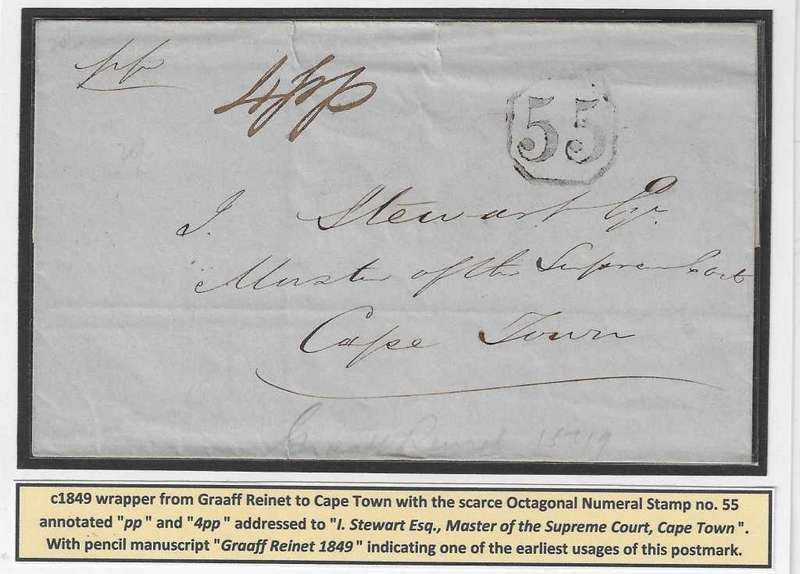 pp
4pp
55
I. Stewart Esqr.
Master of the Supreme Court
Cape Town
Graaff Reinet 1849
c1849 wrapper from Graaff Reinet to Cape Town with the scarce Octagonal Numeral Stamp no. 55
annotated "pp" and "4pp" addressed to "I. Stewart Esq., Master of the Supreme Court, Cape Town".
With pencil manuscript "Graaff Reinet 1849" indicating one of the earliest usages of this postmark.